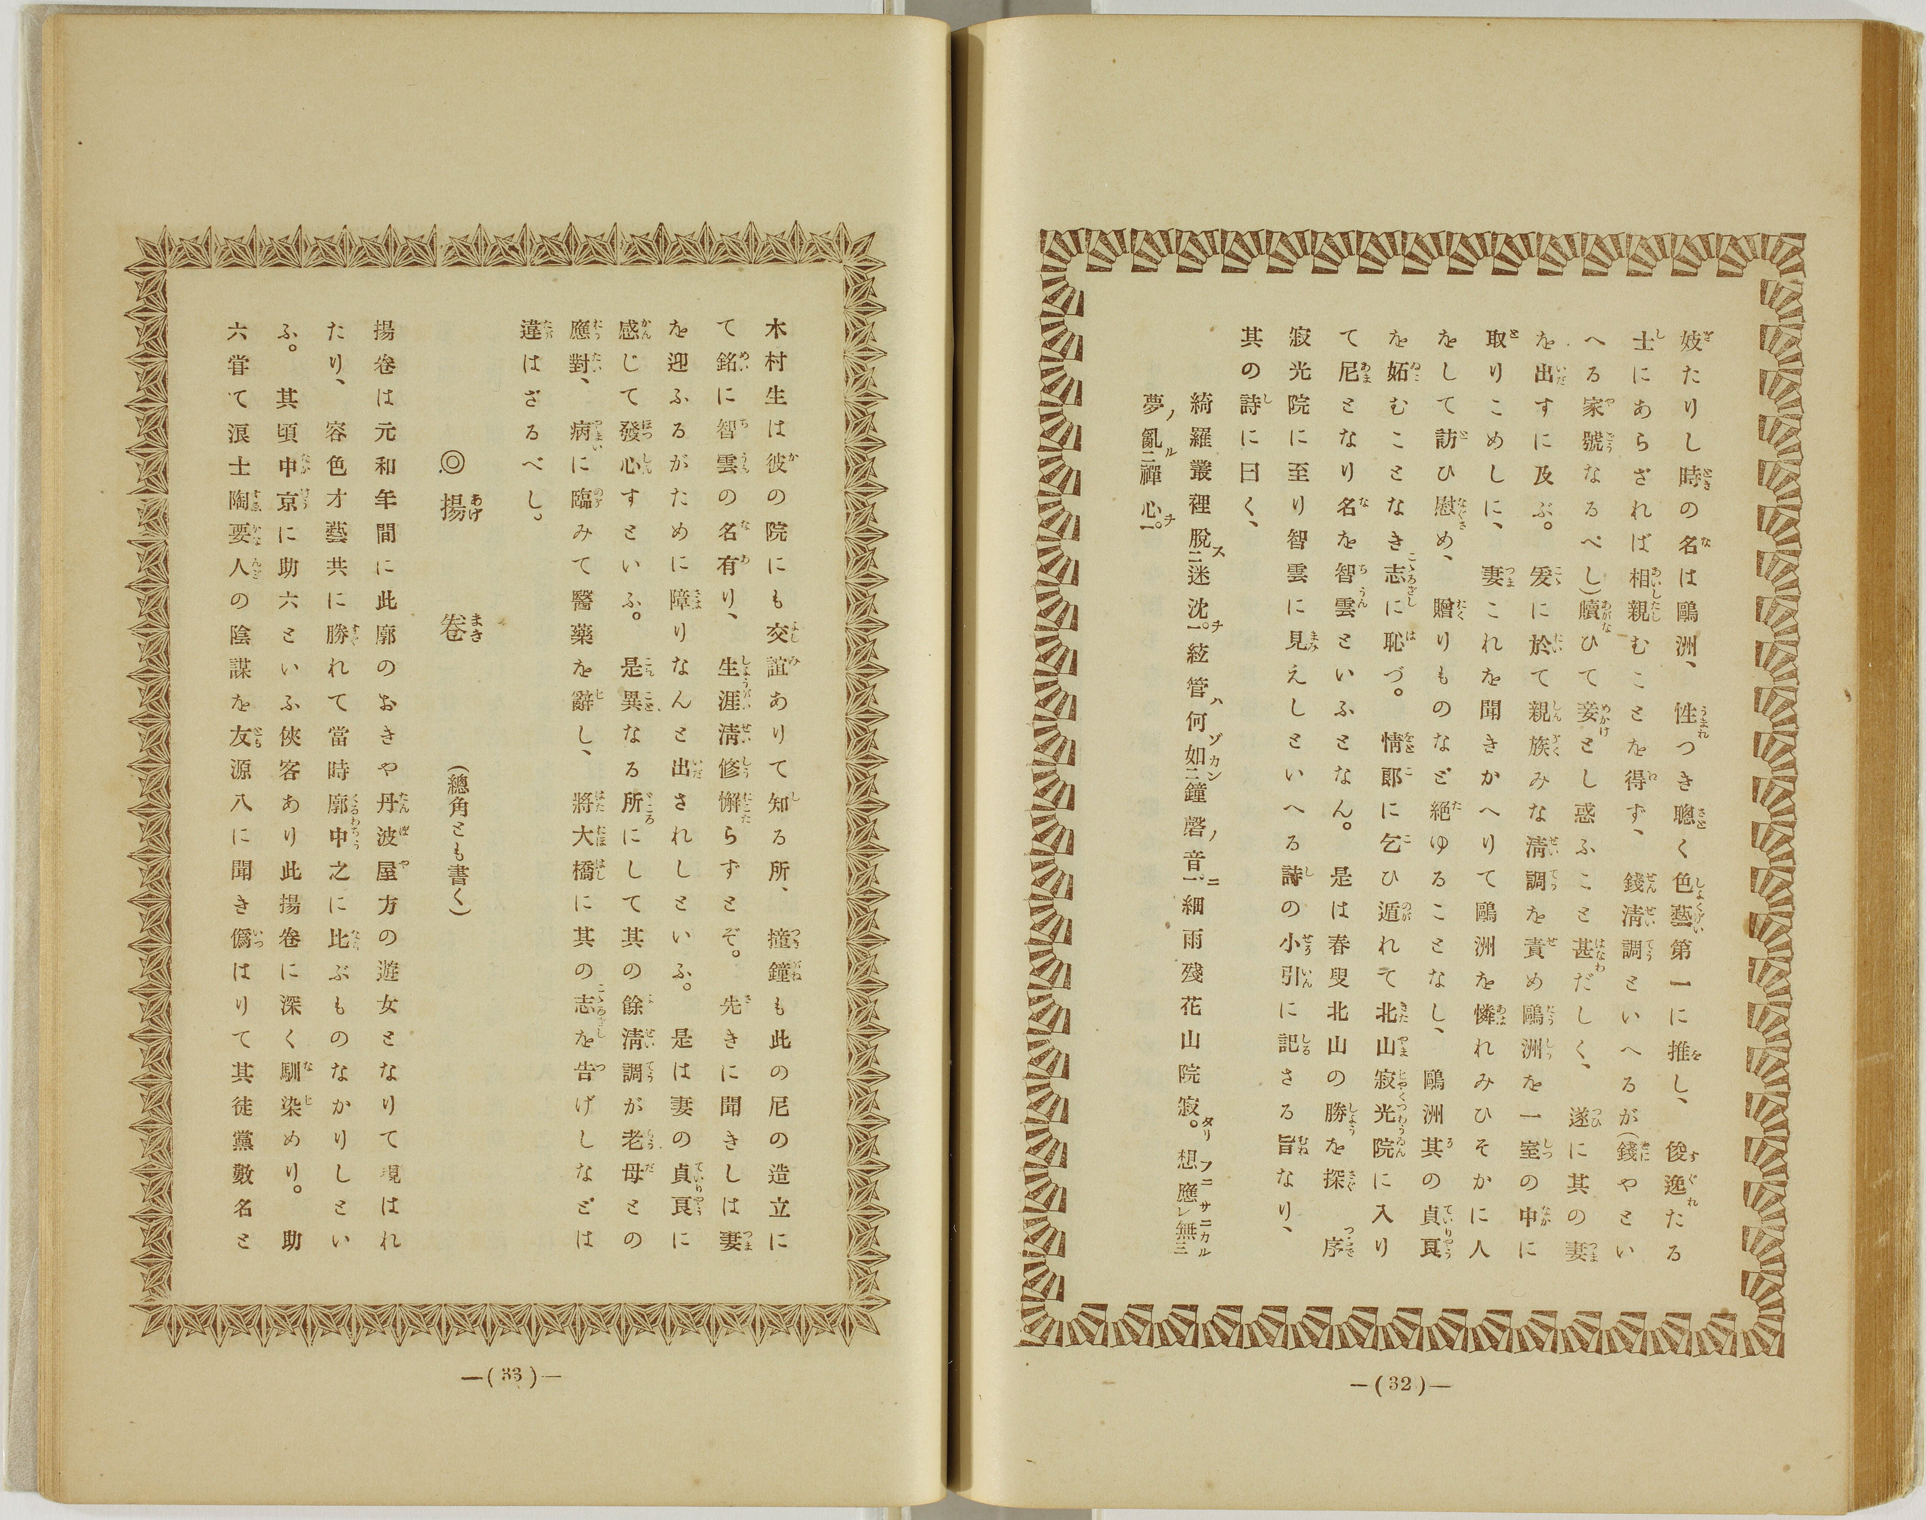 妓たりし時の名は鷗洲、性つき聰く色藝第一に推し、俊逸たる
士にあらざれば相親むことを得ず、錢淸調といへるが(錢やとい
へる家號なるべし)贖ひて妾とし惑ふこと甚だしく、遂に其の妻
を出すに及ぶ。爰に於て親族みな淸調を責め鷗洲を一室の中に
取りこめしに、妻これを聞きかへりて鷗洲を憐れみひそかに人
をして訪ひ慰め、贈りものなど絶ゆることなし、鷗洲其の貞良
を妬むことなき志に恥づ。情郎に乞ひ遁れて北山寂光院に入り
て尼となり名を智雲といふとなん。是は春叟北山の勝を探序
寂光院に至り智雲に見えしといへる詩の小引に記さる旨なり、
其の詩に曰く、
綺羅叢裡脫ス二迷沈一。チ絃管ハ何如ゾカン二鐘磬ノ音一。ニ細雨殘花山院寂。タリ想フニ應サニレ無カル三
夢ノ亂ル二禪心一。チ
―(32)―
木村生は彼の院にも交誼ありて知る所、撞鐘も此の尼の造立に
て銘に智雲の名有り、生涯淸修懈らずとぞ。先きに聞きしは妻
を迎ふるがために障りなんと出されしといふ。是は妻の貞良に
感じて發心すといふ。是異なる所にして其の餘淸調が老母との
應對、病に臨みて醫藥を辭し、將大橋に其の志を告げしなどは
違はざるべし。
◎揚卷(總角とも書く)
揚卷は元和年間に此廓のおきや丹波屋方の遊女となりて現はれ
たり、容色才藝共に勝れて當時廓中之に比ぶものなかりしとい
ふ。其頃中京に助六といふ俠客あり此揚卷に深く馴染めり。助
六甞て浪士陶要人の陰謀を友源八に聞き僞はりて其徒黨數名と
―(33)―